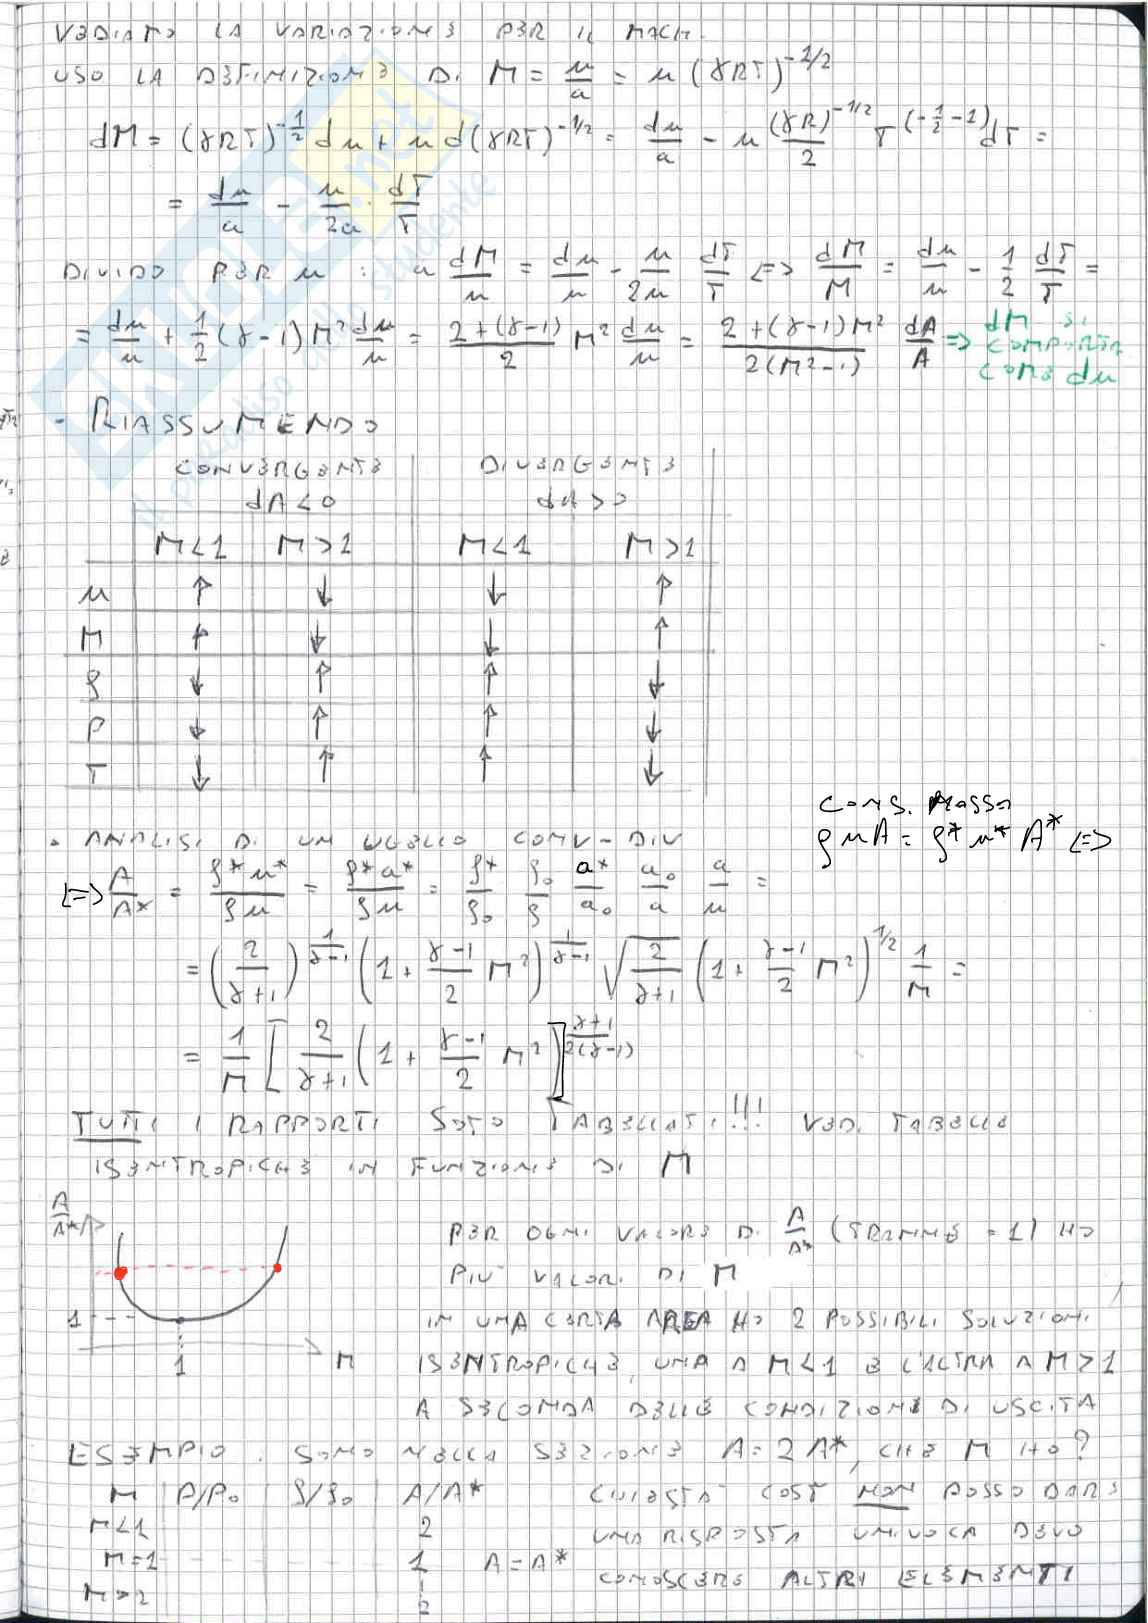 VEDIAMO LA VARIAZIONE PER IL MACH.
USO LA DEFINIZIONE DI M = u/a = u (γRT)^{-1/2}
dM = (γRT)^{-1/2} du + u d(γRT)^{-1/2} = du/a - u (γR)^{-1/2}/2 T^{(-1/2-1)} dT =
= du/a - u/2a · dT/T
DIVIDO PER u : a dM/u = du/u - u/2u dT/T <=> dM/M = du/u - 1/2 dT/T =
= du/u + 1/2 (γ-1) M² du/u = 2+(γ-1)/2 M² du/u = 2+(γ-1)M²/2(M²-1) dA/A => dM SI COMPORTA COME du
- RIASSUMENDO
CONVERGENTE DIVERGENTE
dA<0 dA>0
M<1 M>1 M<1 M>1
u ↑ ↓ ↓ ↑
M ↑ ↓ ↓ ↑
ρ ↓ ↑ ↑ ↓
P ↓ ↑ ↑ ↓
T ↓ ↑ ↑ ↓
CONS. MASSA
• ANALISI DI UN UGELLO CONV-DIV ρuA = ρ* u* A* <=>
<=> A/A* = ρ*u*/ρu = ρ*a*/ρu = ρ*/ρ₀ ρ₀/ρ a*/a₀ a₀/a a/u =
= (2/γ+1)^{1/γ-1} (1 + γ-1/2 M²)^{1/γ-1} √(2/γ+1) (1 + γ-1/2 M²)^{1/2} 1/M =
= 1/M [2/γ+1 (1 + γ-1/2 M²)]^{γ+1/2(γ-1)}
TUTTI I RAPPORTI SOTO TABELLATI!!! VEDI TABELLE
ISENTROPICHE IN FUNZIONE DI M
A/A*
1
1 M
PER OGNI VALORE DI A/A* (TRANNE = 1) HO
PIU' VALORI DI M
IN UNA CERTA AREA HO 2 POSSIBILI SOLUZIONI
ISENTROPICHE, UNA A M<1 E L'ALTRA A M>1
A SECONDA DELLE CONDIZIONI DI USCITA
ESEMPIO. SONO NELLA SEZIONE A = 2A*, CHE M HO?
M P/P₀ ρ/ρ₀ A/A*
M<1 2
M=1 1 A=A*
M>2 2
CHIESTA COSÌ NON POSSO DARE
UNA RISPOSTA UNIVOCA DEVO
CONOSCERE ALTRI ELEMENTI